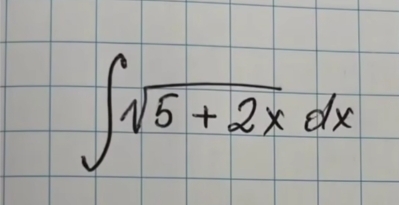 ∫√5 + 2x dx